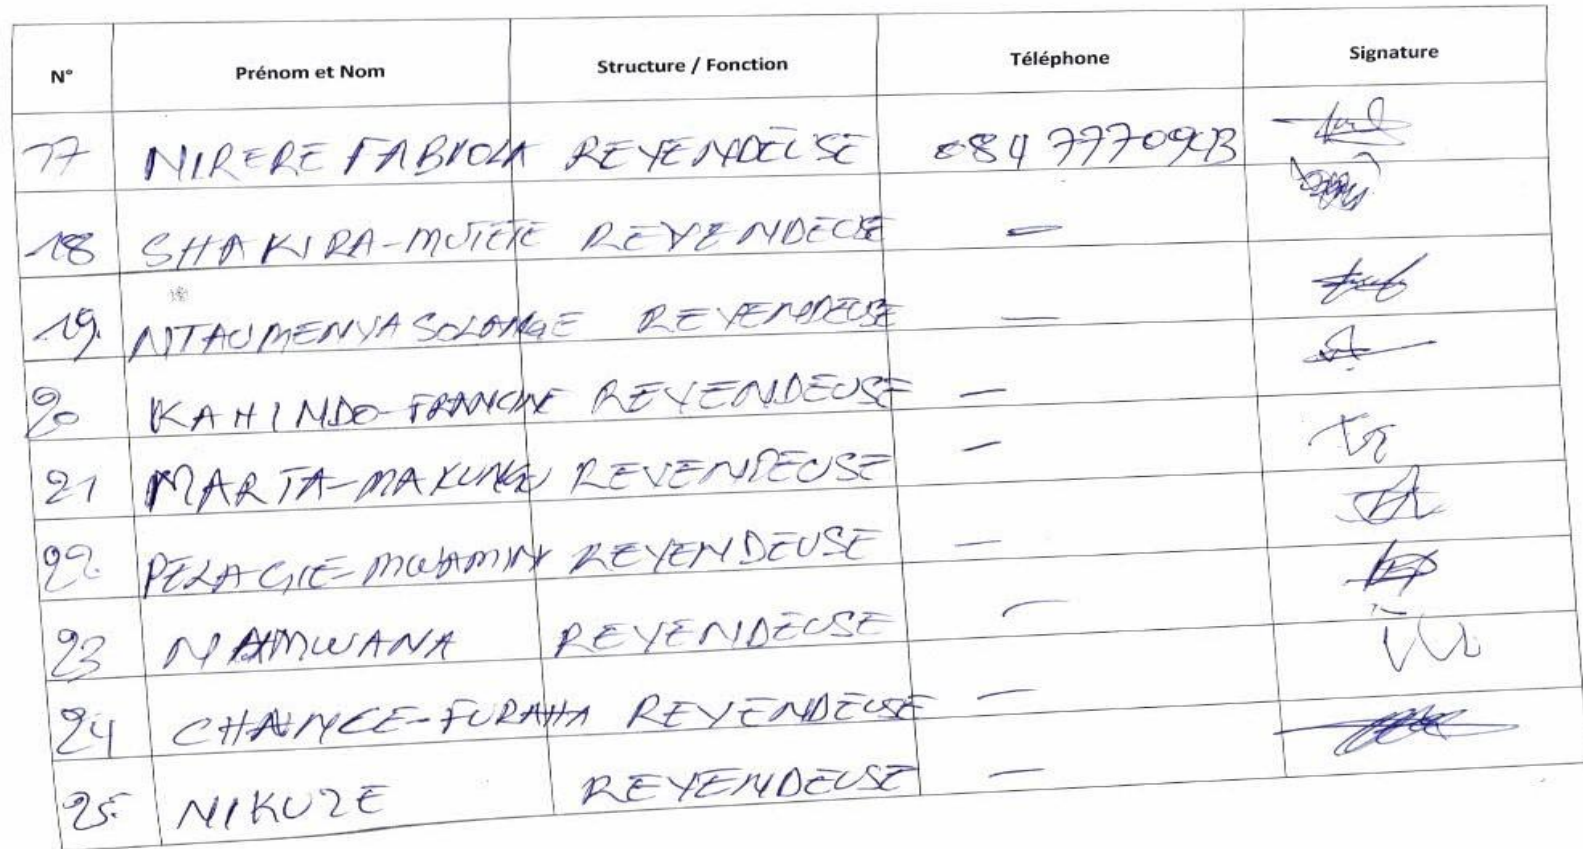 N° Prénom et Nom Structure / Fonction Téléphone Signature
17 NIRERE FABIOLA REVENDEUSE
18 SHAKIRA-MUTETE REVENDEUSE —
19. NTAUMENYA SOLANGE REVENDEUSE —
20 KAHINDO-FRANCINE REVENDEUSE —
21 MARTA-MAKUNGU REVENDEUSE —
22. PELAGIE-MWAMINI REVENDEUSE —
23 NAMWANA REVENDEUSE —
24 CHANCE-FURAHA REVENDEUSE —
25. NIKUZE REVENDEUSE —